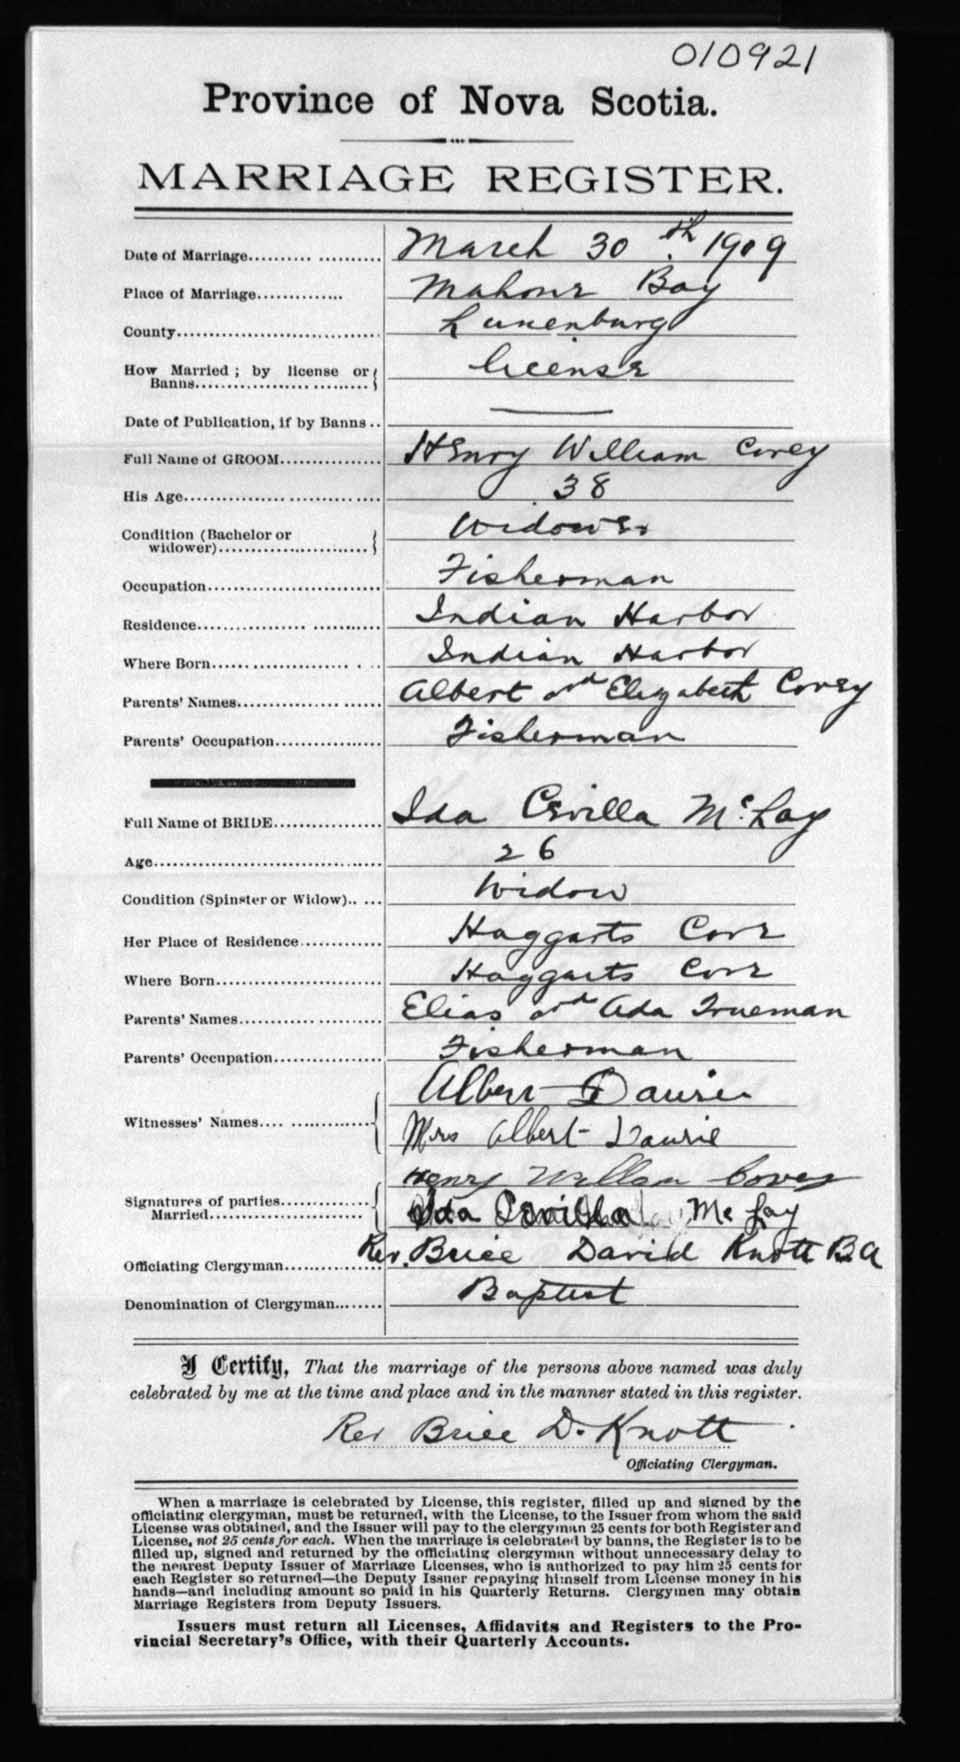 010921
Province of Nova Scotia.
MARRIAGE REGISTER.
Date of Marriage.................... March 30th. 1909
Place of Marriage.............. Mahone Bay
County.............................. Lunenburg
How Married; by license or Banns.................... license
Date of Publication, if by Banns .. ——
Full Name of GROOM............... Henry William Covey
His Age.............................. 38
Condition (Bachelor or widower)...................... Widower
Occupation.......................... Fisherman
Residence........................... Indian Harbor
Where Born.......................... Indian Harbor
Parents' Names..................... Albert and Elizabeth Covey
Parents' Occupation................ Fisherman
Full Name of BRIDE................ Ida Cevilla McLay
Age.................................. 26
Condition (Spinster or Widow)..... Widow
Her Place of Residence............. Haggarts Cove
Where Born.......................... Haggarts Cove
Parents' Names..................... Elias and Ada Trueman
Parents' Occupation................ Fisherman
Witnesses' Names.................. Albert Daurie
Mrs Albert Daurie
Signatures of parties Married...................... Henry William Covey
Ida Cevilla McLay
Officiating Clergyman.............. Rev. Brice David Knott B A
Denomination of Clergyman........ Baptist
I Certify, That the marriage of the persons above named was duly
celebrated by me at the time and place and in the manner stated in this register.
Rev Brice D. Knott
Officiating Clergyman.
When a marriage is celebrated by License, this register, filled up and signed by the
officiating clergyman, must be returned, with the License, to the Issuer from whom the said
License was obtained, and the Issuer will pay to the clergyman 25 cents for both Register and
License, not 25 cents for each. When the marriage is celebrated by banns, the Register is to be
filled up, signed and returned by the officiating clergyman without unnecessary delay to
the nearest Deputy Issuer of Marriage Licenses, who is authorized to pay him 25 cents for
each Register so returned—the Deputy Issuer repaying himself from License money in his
hands—and including amount so paid in his Quarterly Returns. Clergymen may obtain
Marriage Registers from Deputy Issuers.
Issuers must return all Licenses, Affidavits and Registers to the Pro-
vincial Secretary's Office, with their Quarterly Accounts.